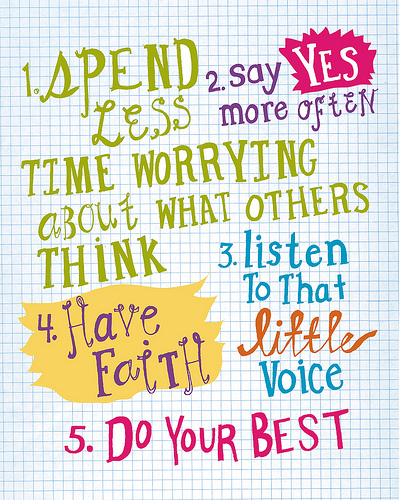 1. SPEND
LESS
TIME WORRYING
aBOUt WHAT OTHERS
THiNK
2. say YES
more OfTEN
3. listen
To That
little
Voice
4. Have
FaiTH
5. DO YOUR BEST